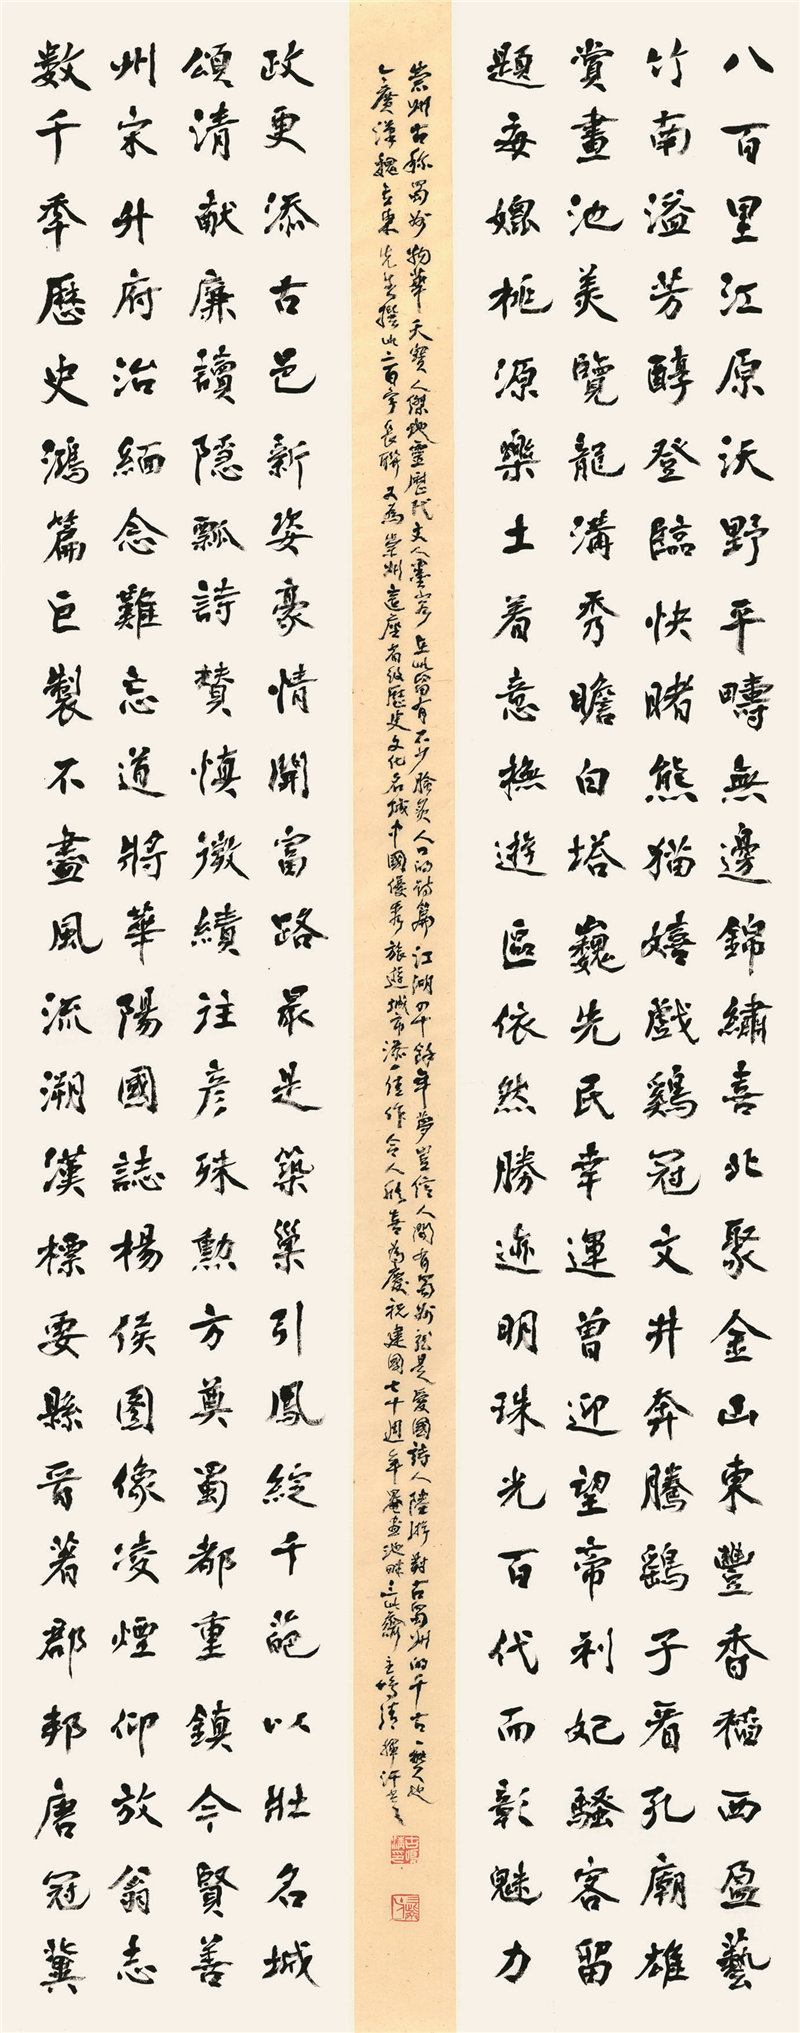 八百里江原沃野平疇無邊錦繡喜北聚金山東豐香稻西盈藝
竹南溢芳醇登臨快睹熊猫嬉戲鷄冠文井奔騰鷂子看孔廟雄
賞畫池美覽龍溝秀瞻白塔巍先民幸運曾迎望帝利妃騷客留
題每媲桃源樂土着意撫遊區依然勝迹明珠光百代而彰魅力
崇州古称蜀州物華天寶人傑地靈歷代文人墨客在此留有不少膾炙人口的诗篇江湖四十餘年夢豈信人間有蜀州就是愛國詩人陸游對古蜀州的千古一嘆也
今廣漢魏東先生撰此二百字長聯又為崇州這座省级歷史文化名城中國優秀旅遊城市添一佳作令人欣喜為慶祝建國七十週年罨畫池畔齋主鳴揮汗書之
数千年歷史鴻篇巨製不盡風流溯漢標要縣晉著郡邦唐冠冀
州宋升府治緬念難忘道將華陽國誌楊侯圖像凌煙仰放翁志
頌清献廉讀隱瓢詩贊慎徵績往彦殊勳方奠蜀都重鎮今賢善
政更添古邑新姿豪情開富路最是築巢引鳳綻千葩以壯名城